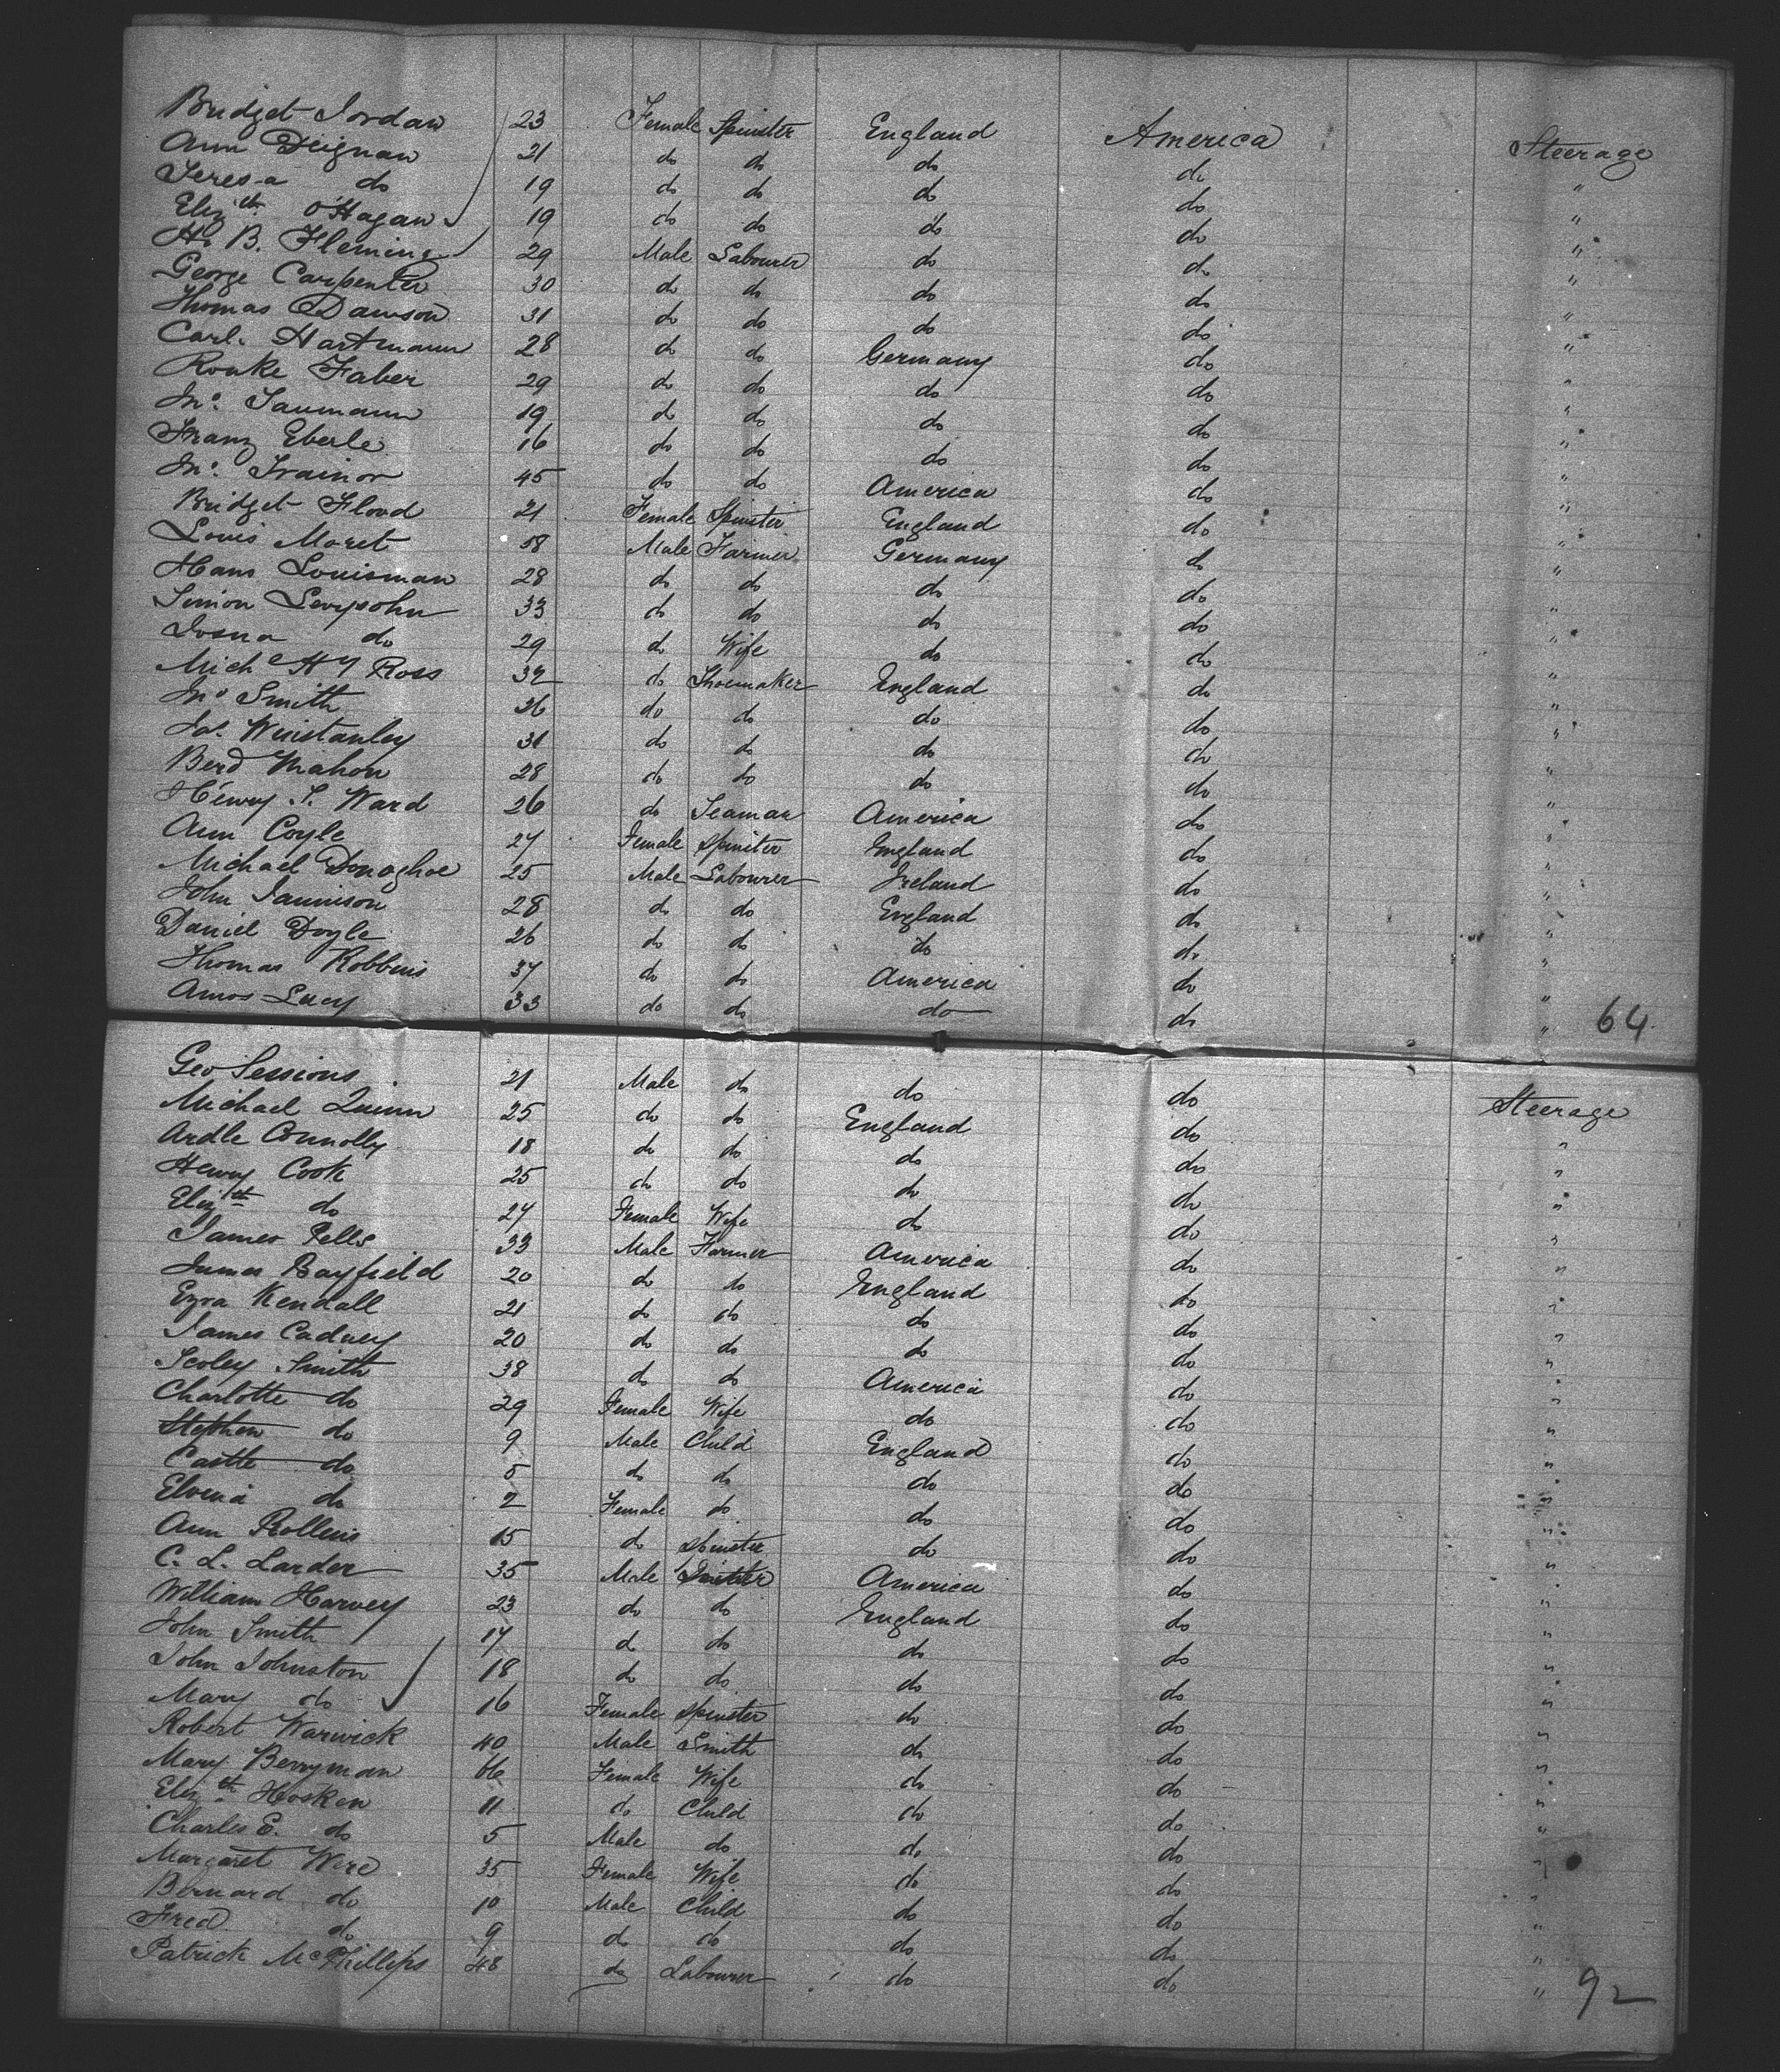 Bridget Jordan 23 Female Spinster England America Steerage
Ann Deignan 21 do do do do "
Teresa do 19 do do do do "
Elizth O'Hagan 19 do do do do "
H. B. Fleming 29 Male Labourer do do "
George Carpenter 30 do do do do "
Thomas Dawson 31 do do do do "
Carl Hartmann 28 do do Germany do "
Ronke Faber 29 do do do do "
Jno. Saumann 19 do do do do "
Franz Eberle 16 do do do do "
Jno. Trainor 45 do do America do "
Bridget Flood 21 Female Spinster England do "
Louis Moret 58 Male Farmer Germany do "
Hans Louisman 28 do do do do "
Simon Levysohn 33 do do do do "
do 29 do Wife do do "
Michl Hy Ross 32 do Shoemaker England do "
Jno Smith 26 do do do do "
Jas. Winstanley 31 do do do do "
Berd Mahon 28 do do do do "
Henry S. Ward 26 do Seaman America do "
Ann Coyle 27 Female Spinster England do "
Michael Donoghoe 25 Male Labourer Ireland do "
John Jannison 28 do do England do "
Daniel Doyle 26 do do do do "
Thomas Robbins 37 do do America do "
Amos Lucy 33 do do do do " 64
Geo Sessions 21 Male do do do Steerage
Michael Quinn 25 do do England do "
Ardle Connolly 18 do do do do "
Henry Cook 25 do do do do "
Elizth do 27 Female Wife do do "
James Pells 33 Male Farmer America do "
James Bayfield 20 do do England do "
Ezra Kendall 21 do do do do "
James Cadney 20 do do do do "
Scoley Smith 38 do do America do "
Charlotte do 29 Female Wife do do "
Stephen do 9 Male Child England do "
Castle do 5 do do do do "
Elvena do 2 Female do do do "
Ann Rollens 15 do Spinster do do "
C. L. Larder 35 Male America do "
William Harvey 23 do do England do "
John Smith 17 do do do do "
John Johnston 18 do do do do "
Mary do 16 Female Spinster do do "
Robert Warwick 40 Male Smith do do "
Mary Berryman 66 Female Wife do do "
Elizth Hosken 11 do Child do do "
Charles E. do 5 Male do do do "
Margaret Were 35 Female Wife do do "
Bernard do 10 Male Child do do "
Fred do 9 do do do do "
Patrick McPhillips 48 do Labourer do do " 92